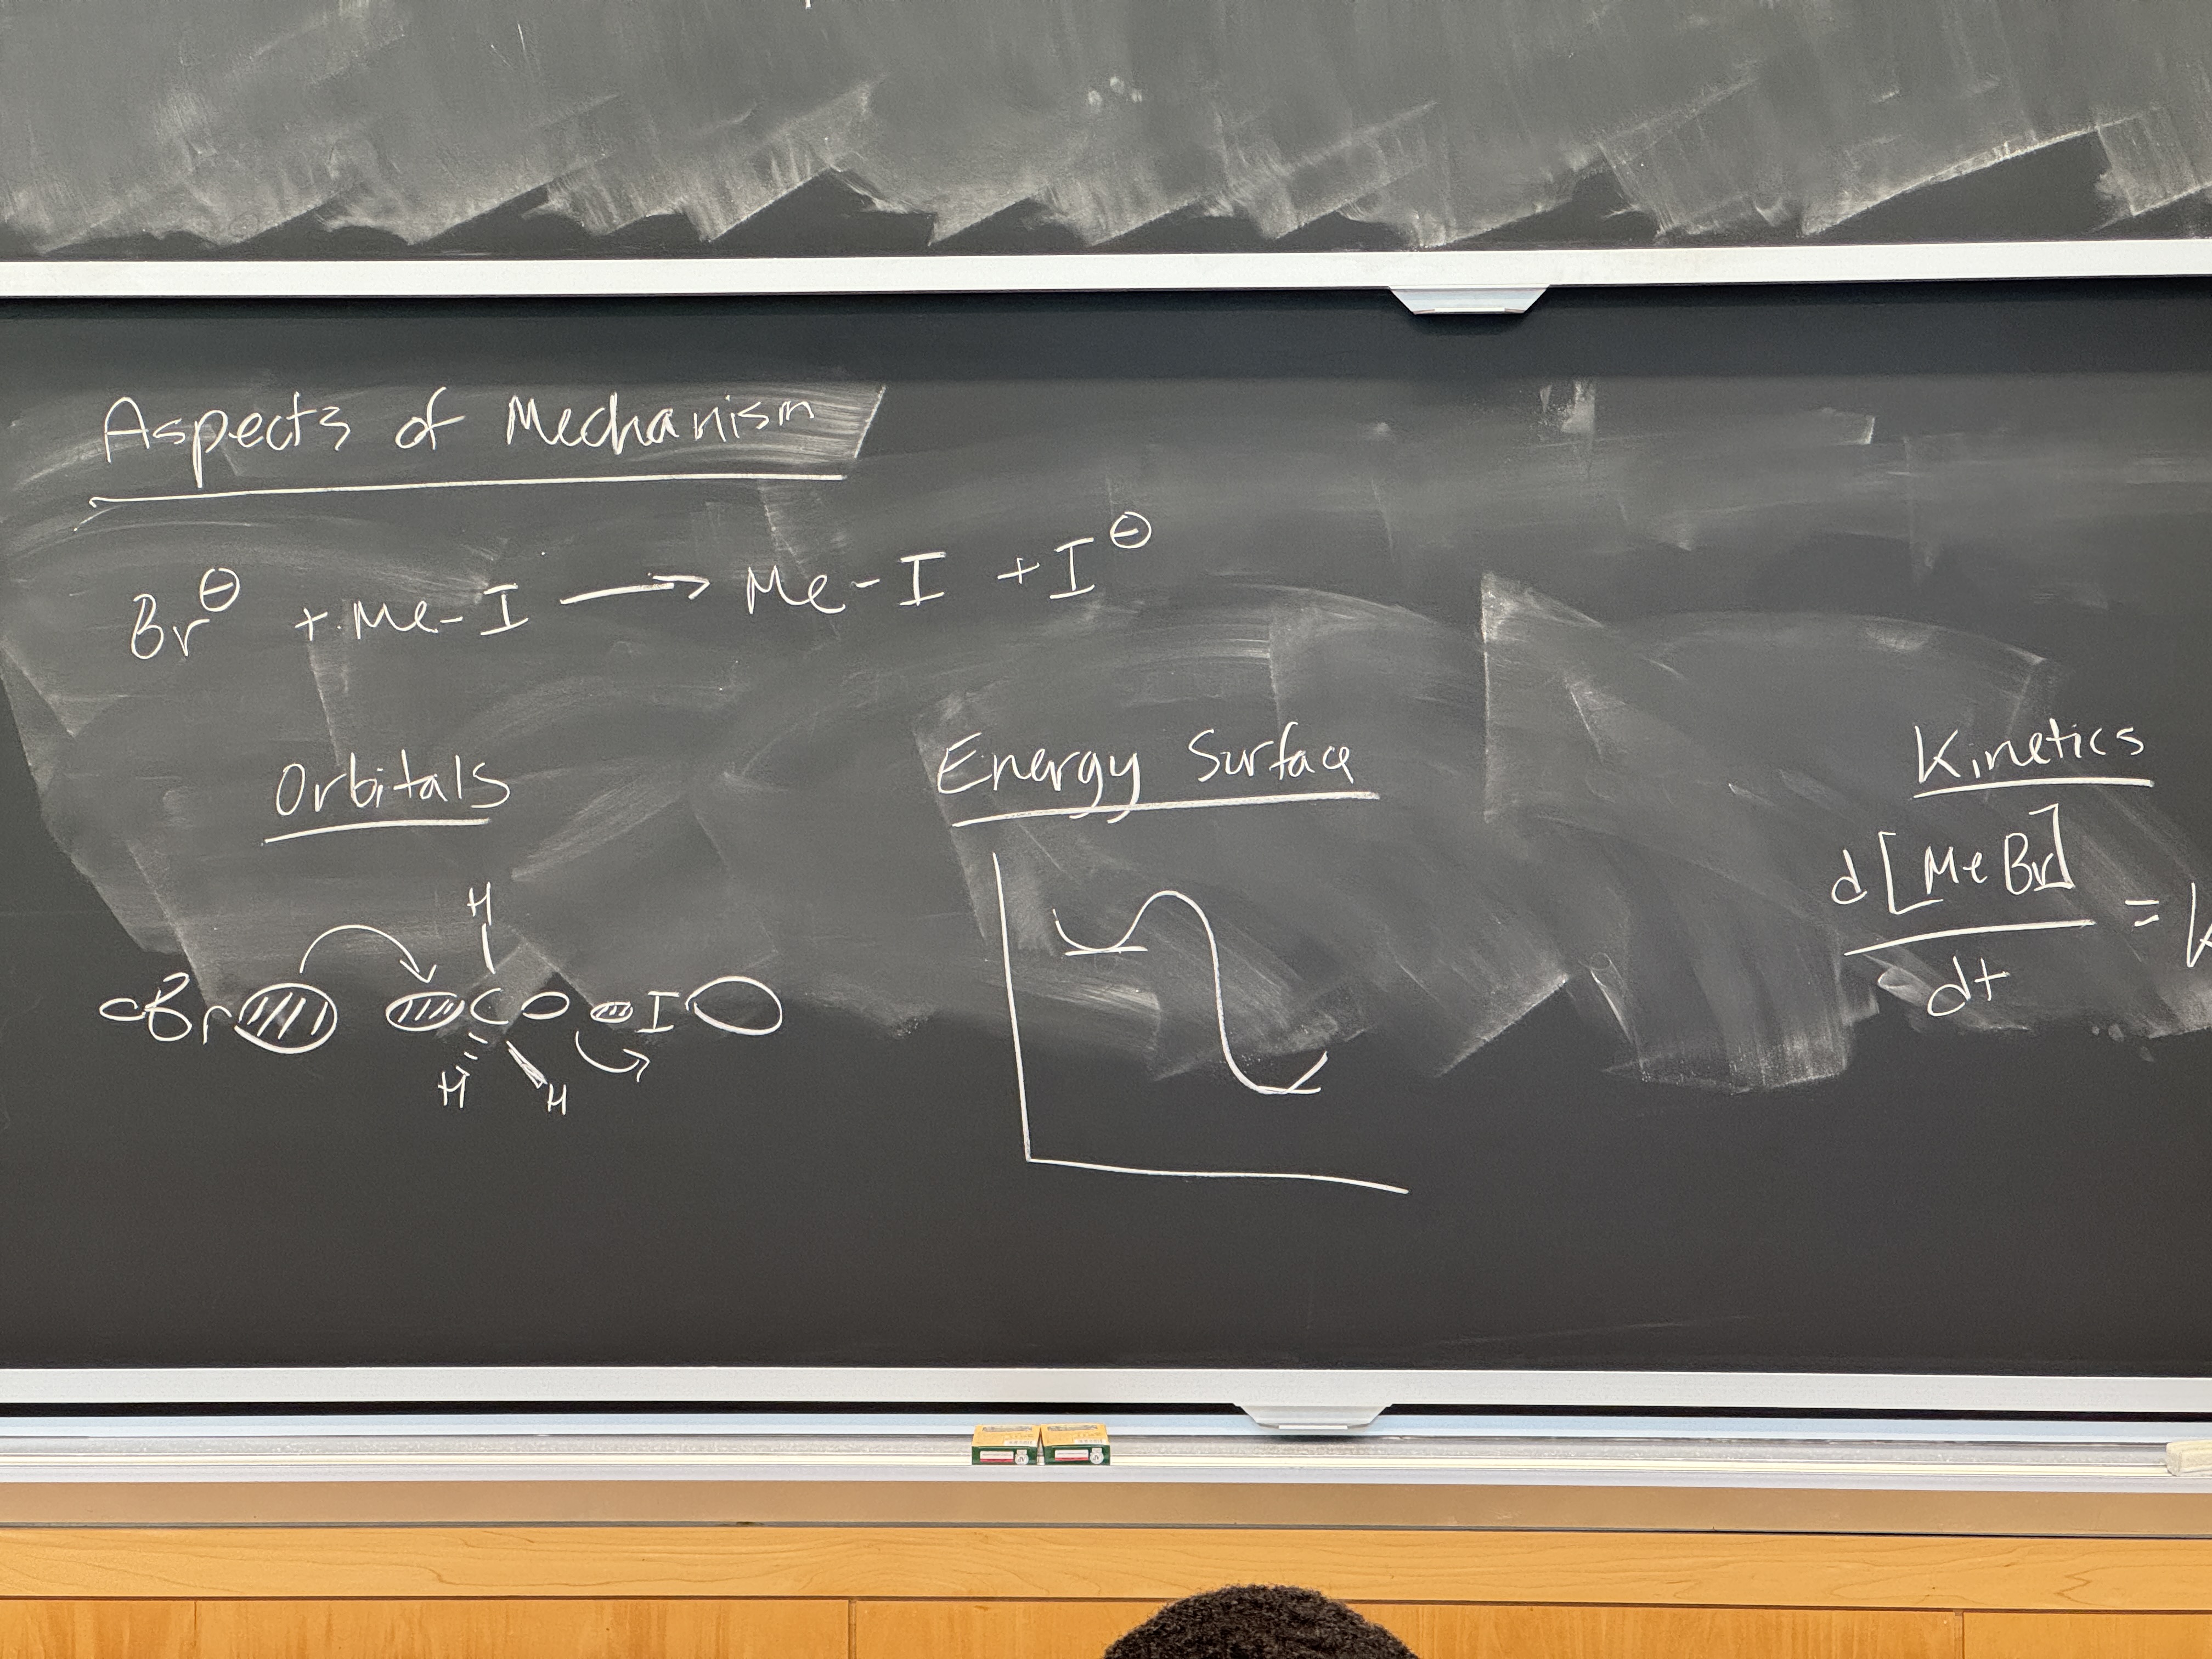 Aspects of Mechanism
Br⊖ + Me-I ⟶ Me-I + I⊖
Orbitals
H
Br C I
H H
Energy Surface
Kinetics
d[MeBr]
=
dt